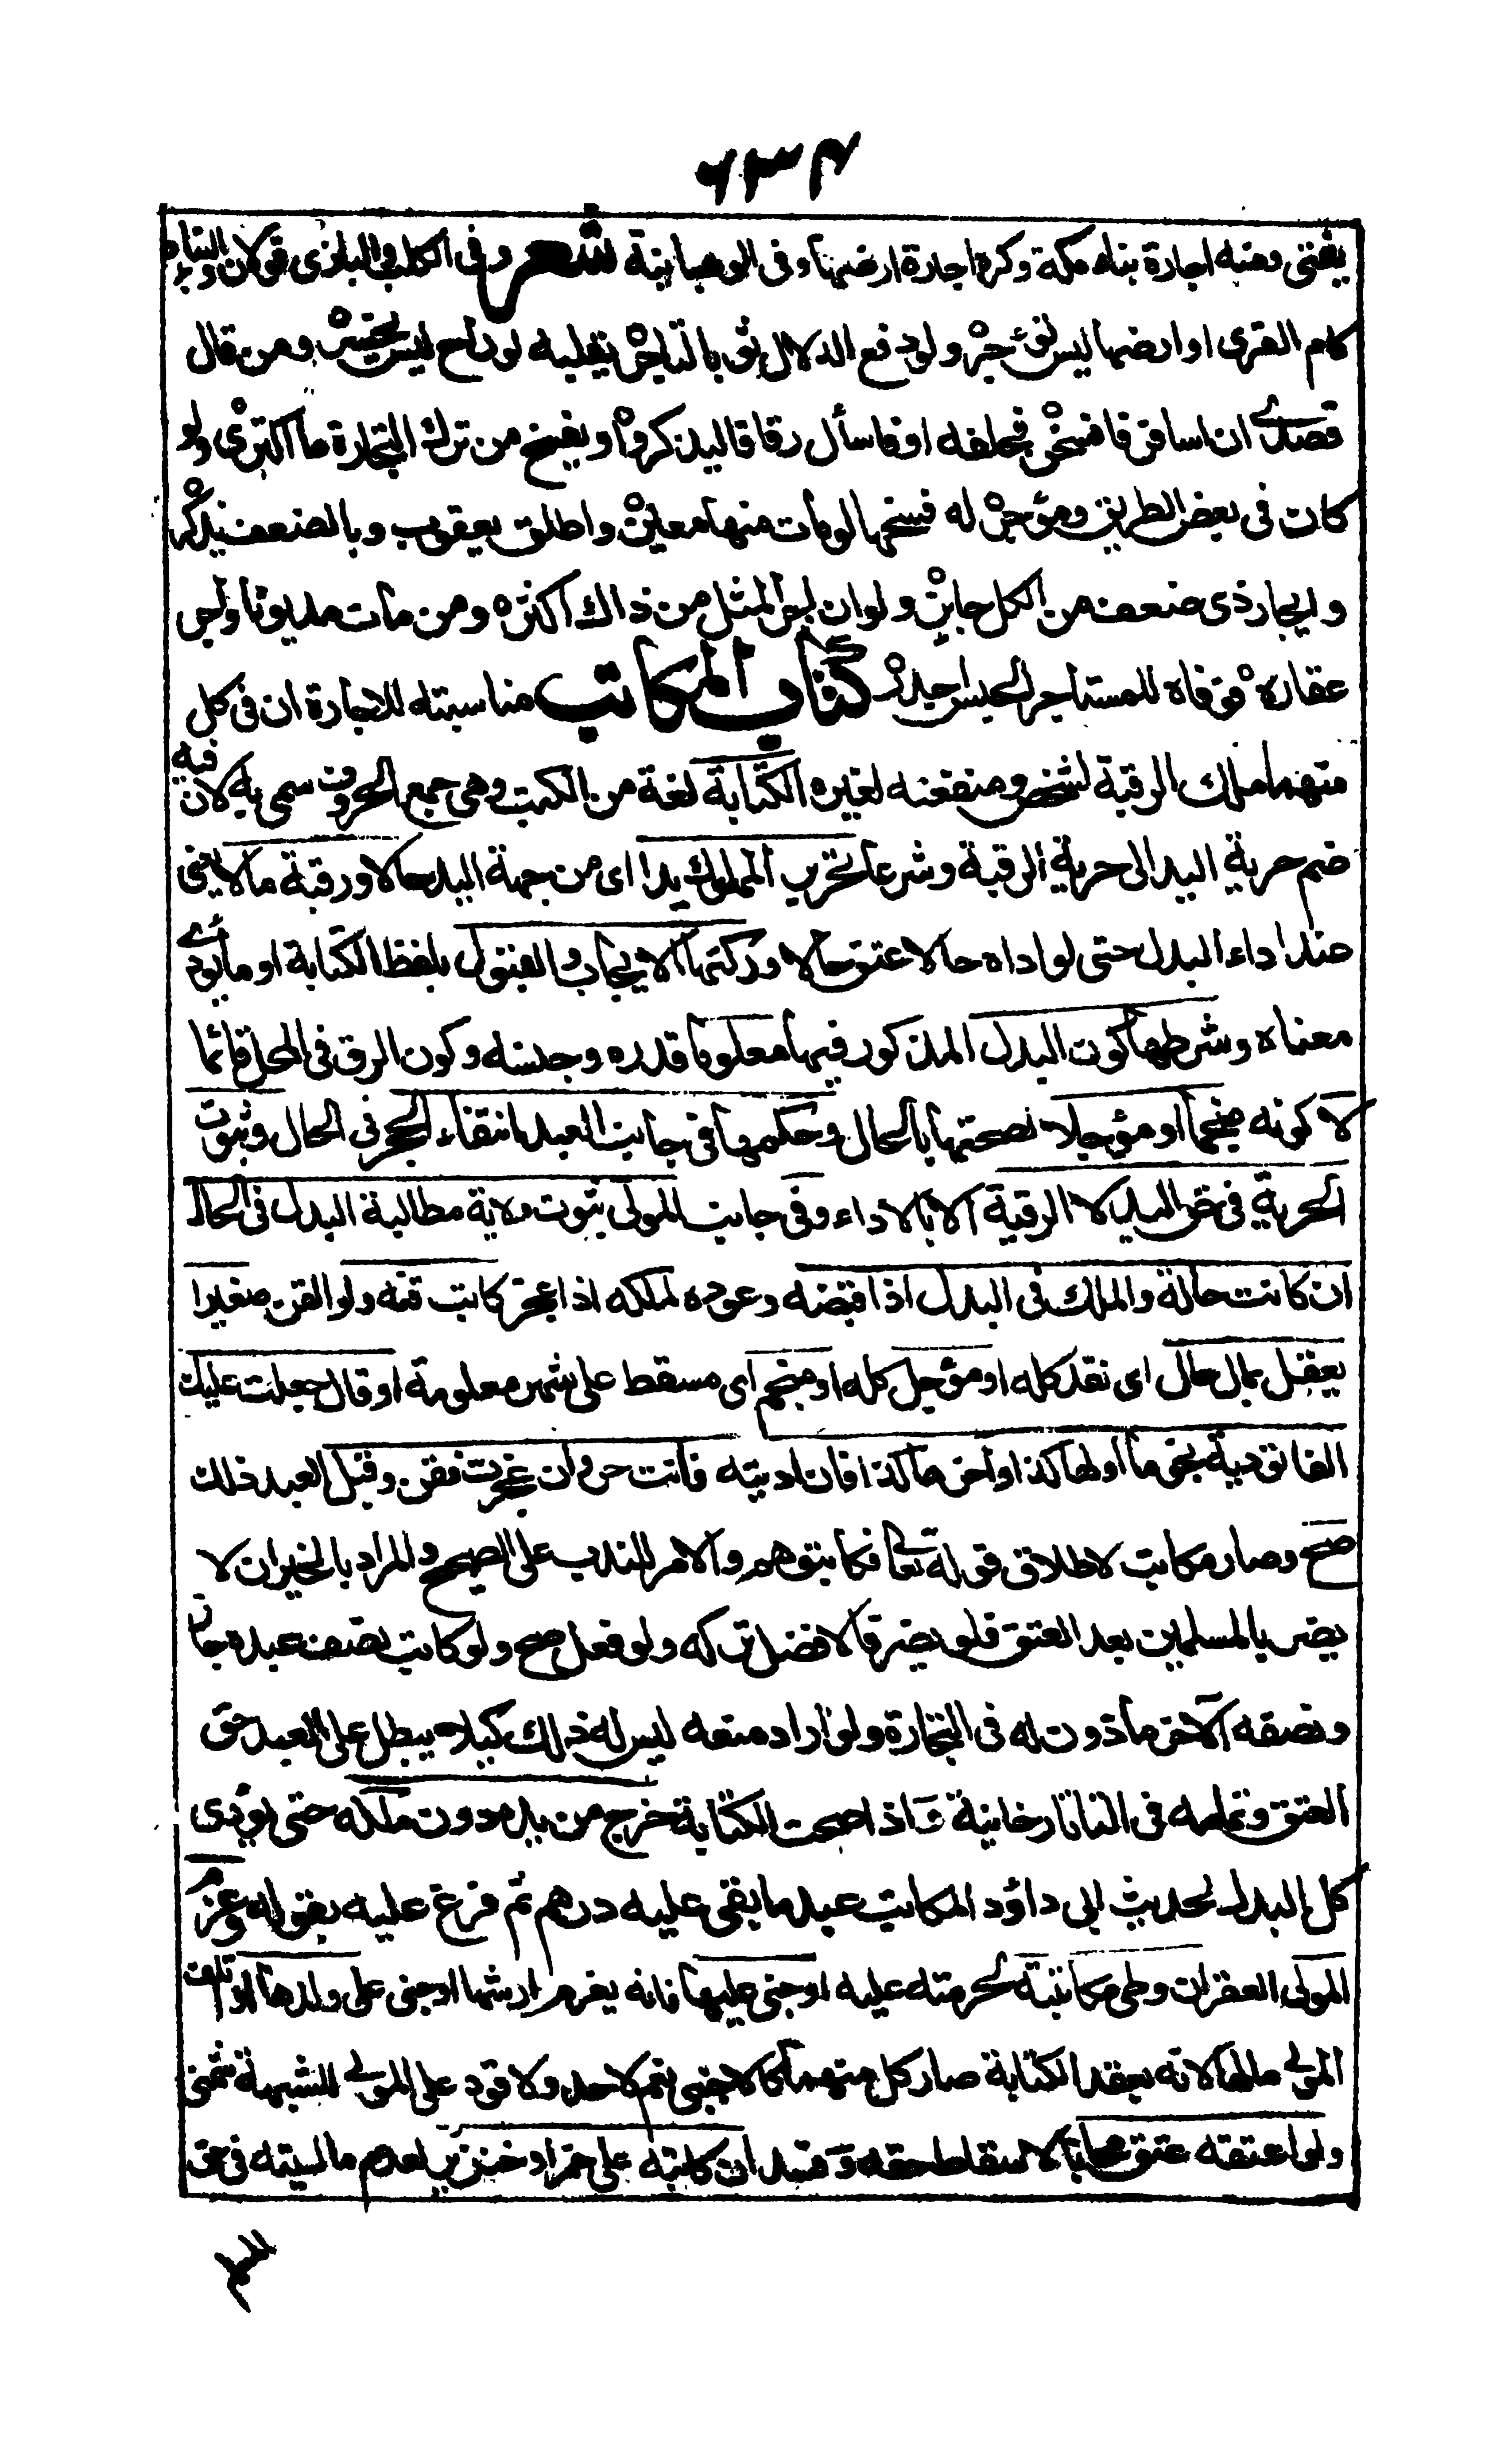 ٦٣٤
يفتى ومنه اجارة بناء مكة وكره اجارة ارضها وفى الوهبانية شعر وفى الكلب والبازى قولان والبنا
كام القرى او ارضها ليس يؤجر ولو دفع الدلال ثوبا لتاجر يقلبه لو راح ليس يخسر ومن قال
قصدى ان اسافر فافسخن فحلفه او فاسأل رفاقا ليذكروا ويفسخ من ترك التجارة ما اكترى ولو
كان فى بعض الطريق ومؤجر له فسخها لو مات منها معين واطلق يعقوب وبالضعف يذكر
وايجار ذى ضعف من الكل جايز ولو ان اجر المثل من ذاك اكثره ومن مات مديونا واجر
عقاره توفاه للمستاجر الحبس اجدر كتاب المكاتب مناسبته للاجارة ان فى كل
منهما ملك الرقبة لشخص ومنفعته لغيره الكتابة لغة من الكتب وهى جمع الحروف سمى به لان فيه
ضم حرية اليد الى حرية الرقبة وشرعا تحرير المملوك يدا اى من جهة اليد حالا ورقبة مآلا يعنى
عند اداء البدل حتى لو اداه حالا عتق حالا وركنها الايجاب والقبول بلفظ الكتابة او ما يؤدى
معناه وشرطها كون البدل المذكور فيها معلوما قدره وجنسه وكون الرق فى المحل قائما
لا كونه منجما او مؤجلا لصحتها بالحال وحكمها فى جانب العبد انتفاء الحجر فى الحال وثبوت
الحرية فى حق اليد لا الرقبة الا بالاداء وفى جانب المولى ثبوت ولاية مطالبة البدل فى الحال
ان كانت حالة والملك فى البدل اذا قبضه وعوده لملكه اذا عجز كاتب قنه ولو القن صغيرا
يعقل بمال حال اى نقد كله او مؤجل كله او منجم اى مسقط على شهر معلومة او قال جعلت عليك
الفا تؤديه نجوما اولها كذا وآخرها كذا فان اديته فانت حر وان عجزت فقن وقبل العبد ذلك
صح وصار مكاتبا لاطلاق قوله تعا فكاتبوهم والامر للندب على الصحيح والمراد بالخير ان لا
يضر بالمسلمين بعد العتق فلو يضر فالافضل تركه ولو فعل صح ولو كاتب نصف عبده جاز
ونصفه الآخر مأذون له فى التجارة ولو اراد منعه ليس له ذلك كيلا يبطل على العبد حق
العتق وتمامه فى التاتارخانية واذا صحت الكتابة خرج من يده دون ملكه حتى يؤدى
كل البدل لحديث ابى داؤد المكاتب عبد ما بقى عليه درهم ثم فرع عليه بقوله وغرم
المولى العقر ان وطى مكاتبته لحرمته عليه او جنى عليها فانه يغرم ارشها او جنى على ولدها او اتلف
المولى مالها لانه بعقد الكتابة صار كل منهما كالاجنبى نعم لا حد ولا قود على المولى للشبهة شمنى
ولو اعتقه عتق مجانا لاسقاط حقه وفسد ان كاتبه على خمر او خنزير لعدم ماليته فى حق